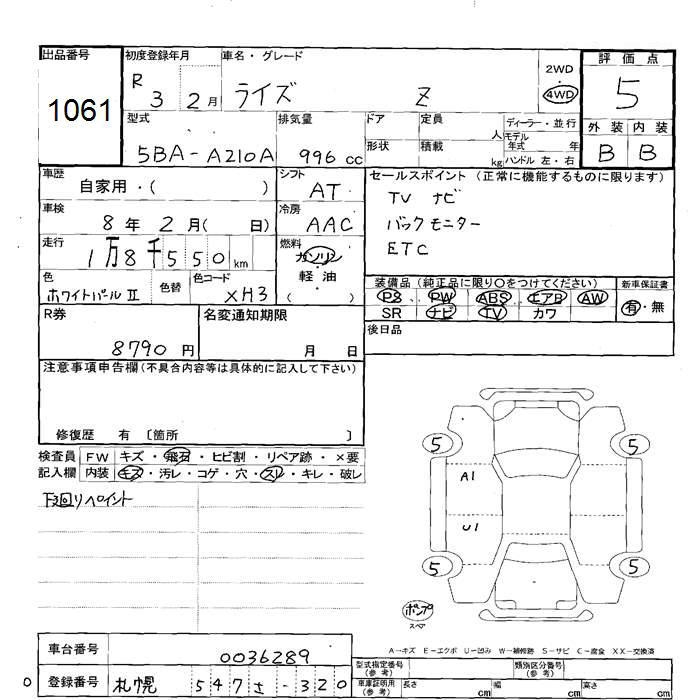 出品番号
1061
初度登録年月
R 3 2月
車名・グレード
ライズ Z
2WD
・
4WD
評価点
5
型式
5BA-A210A
排気量
996 cc
ドア
定員
人
ディーラー・並行
モデル
年式 年
形状
積載
kg
ハンドル 左・右
外装 内装
B B
車歴
自家用・( )
シフト
AT
セールスポイント(正常に機能するものに限ります)
TV ナビ
バックモニター
ETC
車検
8年 2月( 日)
冷房
AAC
走行
1万8千550km
燃料
ガソリン
・
軽油
( )
色
ホワイトパールⅡ
色替
色コード
XH3
装備品(純正品に限り○をつけてください)
新車保証書
PS PW ABS エアB AW
SR ナビ TV カワ
有・無
R券
8790円
名変通知期限
月 日
後日品
注意事項申告欄(不具合内容等は具体的に記入して下さい)
修復歴 有 〔箇所 〕
検査員
記入欄
FW キズ・飛石・ヒビ割・リペア跡・×要
内装 キズ・汚レ・コゲ・穴・スレ・キレ・破レ
下廻リペイント
5 5
A1
U1
5 5
ポンプ
スペア
A-キズ E-エクボ U-凹み W-補修跡 S-サビ C-腐食 XX-交換済
車台番号
0036289
型式指定番号
(参考)
類別区分番号
(参考)
0
登録番号
札幌 547さ-320
車庫証明用
(参考)
長さ cm
幅 cm
高さ cm